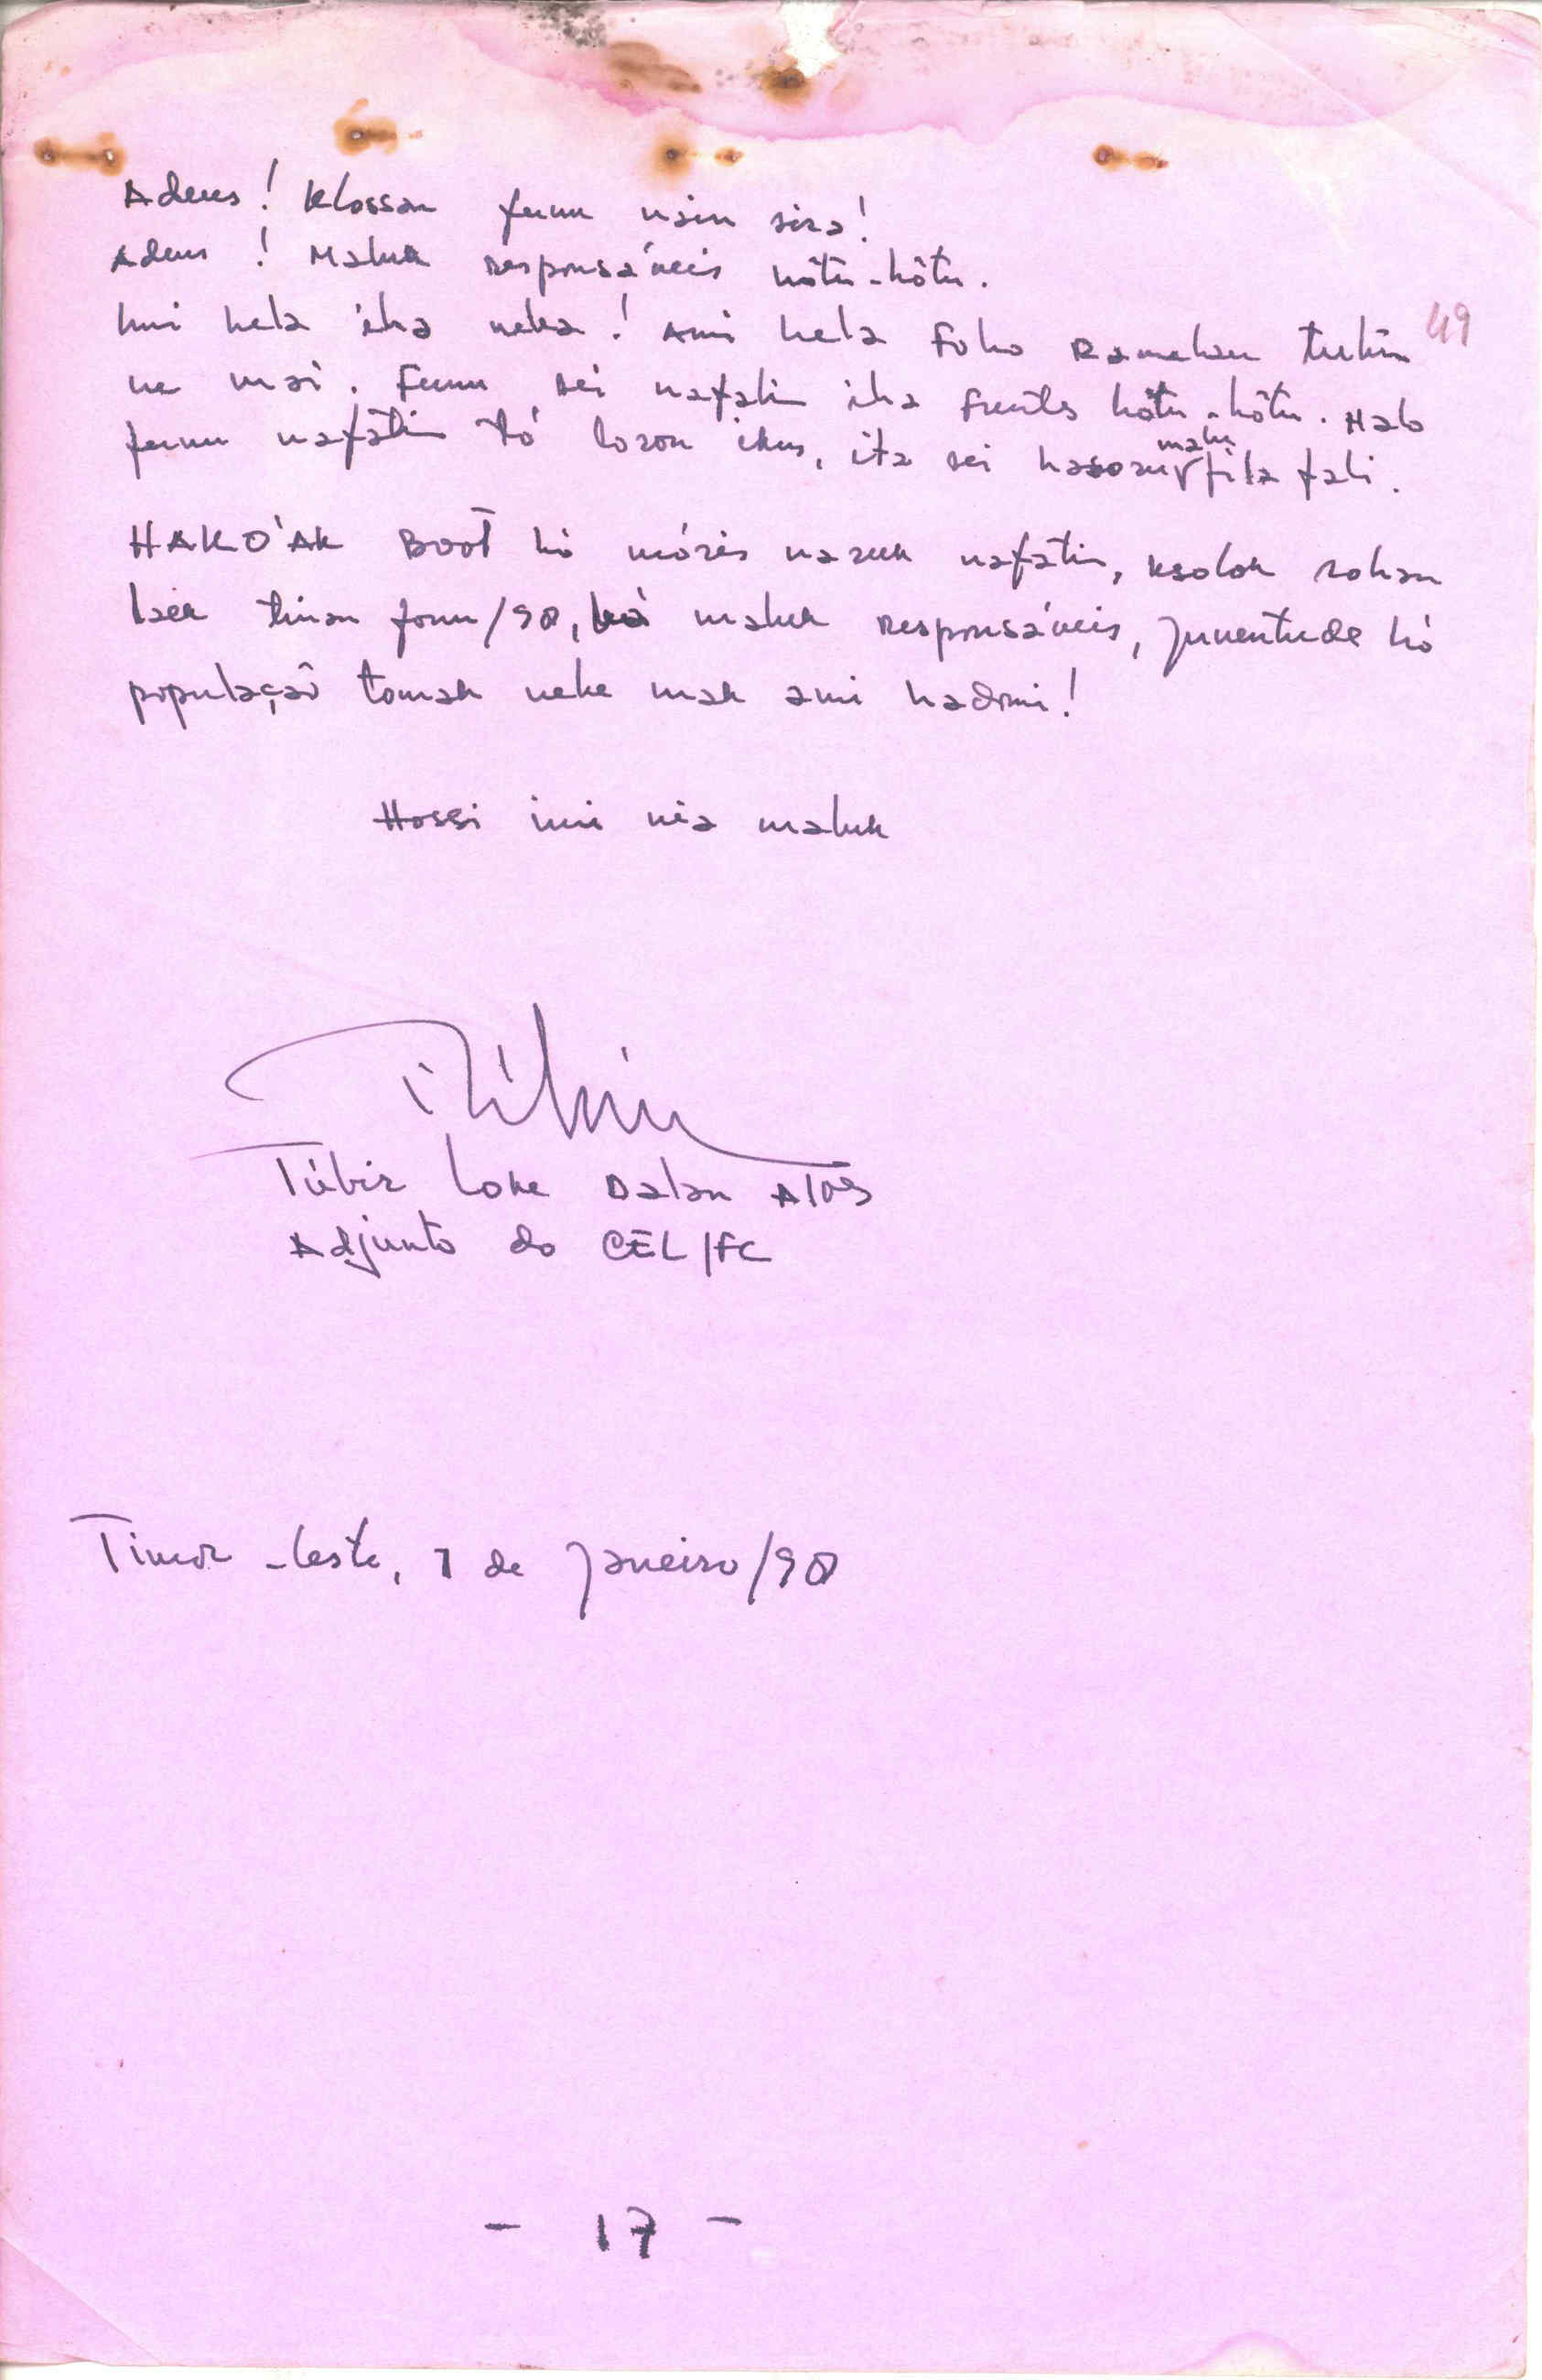 Adeus! Klossan funu nain sira!
Adeus! Maluk responsáveis hôtu-hôtu.
Imi hela iha neba! Ami hela Foho Ramelau tutun
ne mai. Funu sei nafatin iha Frentes hôtu-hôtu. Halo
funu nafatin tó loron ikus, ita sei hasoru malu fila fali.
HAKO'AK BOOT hó móris naruk nafatin, ksolok rohan
laek tinan fonu/90, bá maluk responsáveis, juventude hó
populaçaõ tomak nebe mak ami hadomi!
Hossi imi nia maluk
Túbir Loke Dalan Atos
Adjunto do CEL/FC
Timor-Leste, 1 de Janeiro/90
- 17 -
49